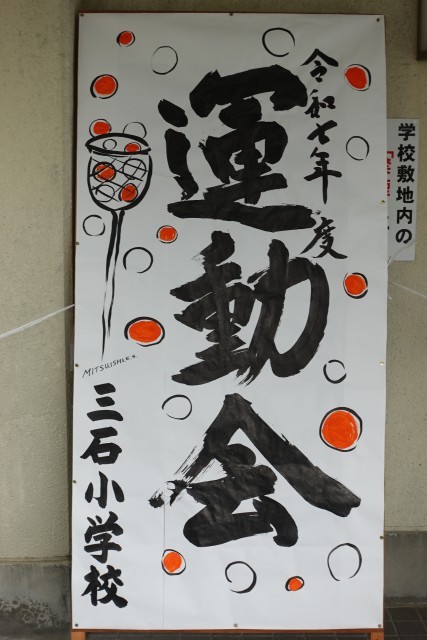 令和七年度
運動会
MITSUISHI E.S.
三石小学校
学校敷地内の